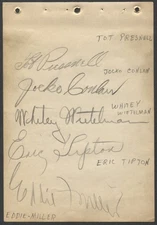 TOT PRESNELL
Tot Presnell
JOCKO CONLAN
Jocko Conlan
WHITEY
WIETELMAN
Whitey Wietelmann
Eric Tipton
ERIC TIPTON
Eddie Miller
EDDIE-MILLER